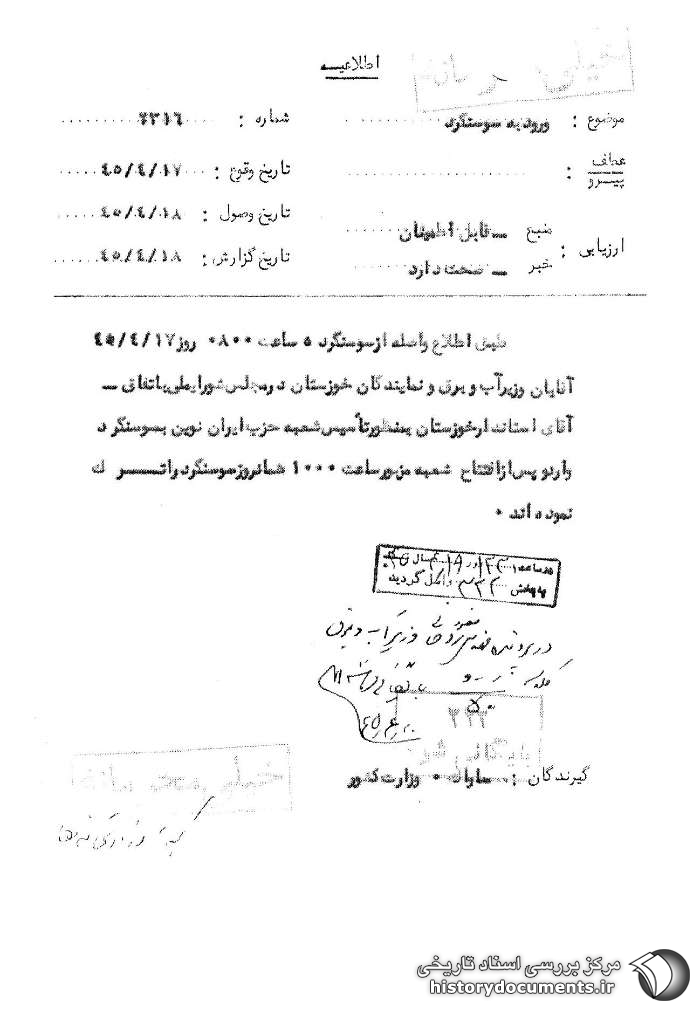 اطلاعیه
موضوع : ورود به سوسنگرد
شماره : ۲۳۱۶
عطف
پیرو :
تاریخ وقوع : ۴۵/۴/۱۷
تاریخ وصول : ۴۵/۴/۱۸
ارزیابی : منبع ــ قابل اطمینان
خبر ــ صحت دارد
تاریخ گزارش : ۴۵/۴/۱۸
طبق اطلاع واصله از سوسنگرد ه ساعت ۰۸۰۰ روز ۴۵/۴/۱۷
آقایان وزیر آب و برق و نمایندگان خوزستان در مجلس شورایملی باتفاق ــ
آقای استاندار خوزستان بمنظور تأسیس شعبه حزب ایران نوین بسوسنگرد
وارد و پس از افتتاح شعبه مزبور ساعت ۱۰۰۰ همانروز سوسنگرد را ترک
نموده اند ۰
در ساعت
به بخش ۳۳۲ واصل گردید
در پرونده وزیر آب و برق
۳۳۲
بایگانی شود
گیرندگان : ساواك ۰ وزارت کشور
خیلی محرمانه
مرکز بررسی اسناد تاریخی
historydocuments.ir